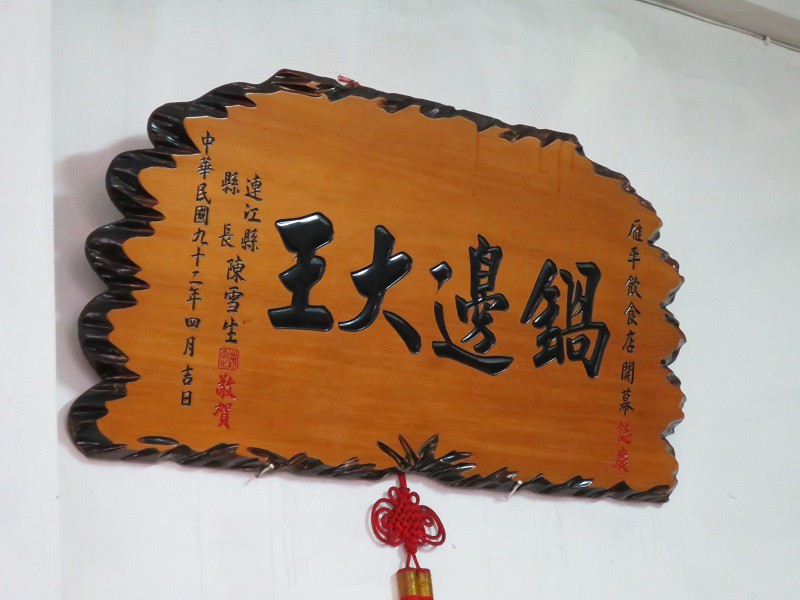 雁平飲食店開幕誌慶
鍋邊大王
連江縣
縣長陳雪生敬賀
中華民國九十二年四月吉日